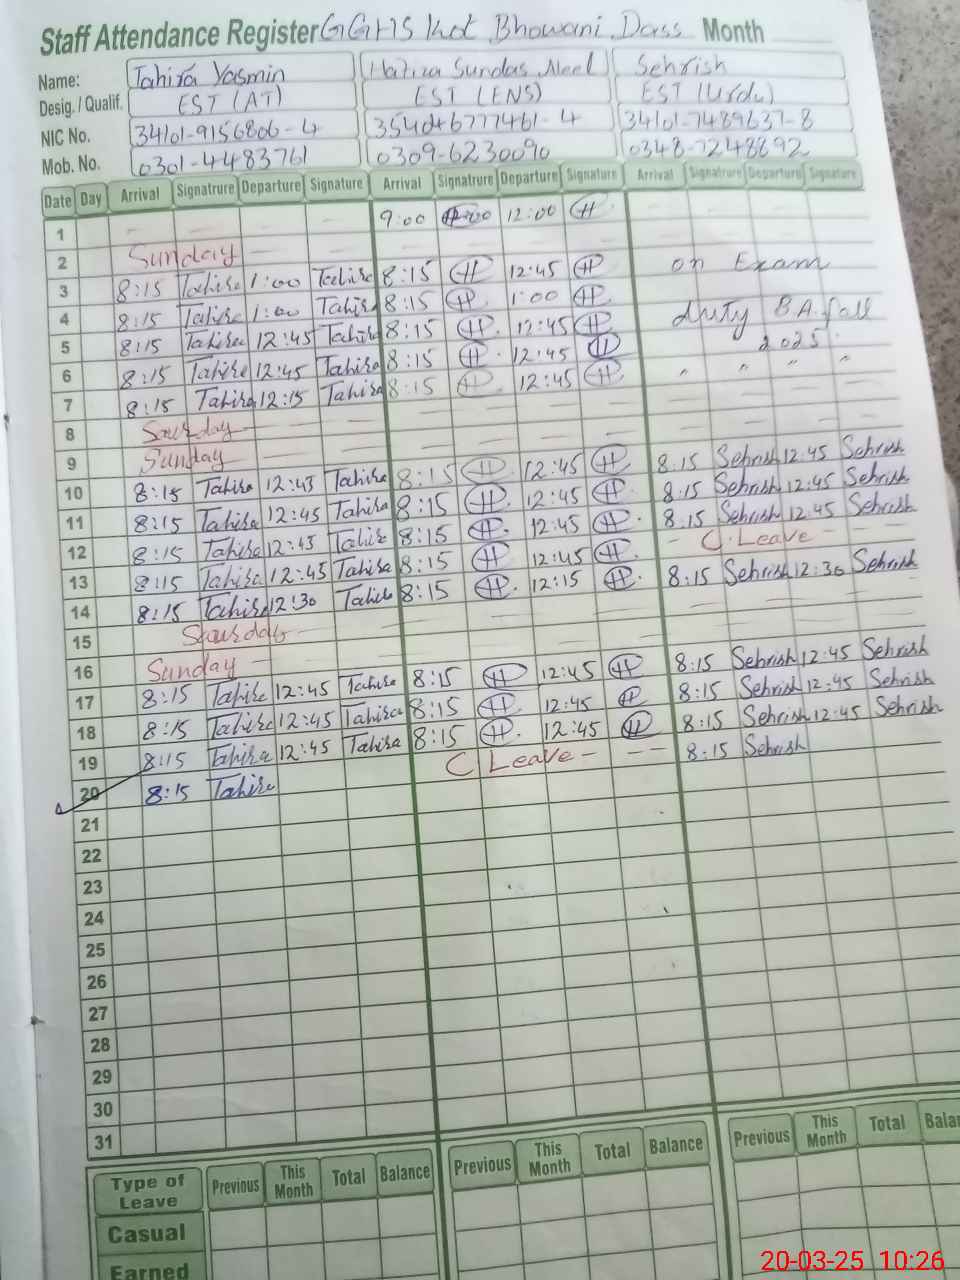 Staff Attendance Register GGHS Kot Bhowani Dass Month
Name: Tahira Yasmin Sundas Sehrish
Desig. / Qualif. EST (AT) EST (ENS) EST (Urdu)
NIC No. 34101-9156806-4 34101-7489637-8
Mob. No. 0301-4483761 0309-6230090 0348-7248892
Date Day Arrival Signatrure Departure Signature Arrival Signatrure Departure Signature Arrival Signatrure Departure Signature
1 9:00 12:00 H
2 Sunday
3 8:15 Tahira 1:00 Tahira 8:15 H 12:45 H on Exam
4 8:15 Tahira 1:00 Tahira 8:15 H 1:00 H duty B.A fall
5 8:15 Tahira 12:45 Tahira 8:15 H 12:45 H 2025
6 8:15 Tahira 12:45 Tahira 8:15 H 12:45 H " " "
7 8:15 Tahira 12:15 Tahira 8:15 H 12:45 H
8
9 Sunday
10 8:15 Tahira 12:43 Tahira 8:15 H 12:45 H 8:15 Sehrish 12:45 Sehrish
11 8:15 Tahira 12:45 Tahira 8:15 H 12:45 H 8:15 Sehrish 12:45 Sehrish
12 8:15 Tahira 12:43 Tahira 8:15 H 12:45 H 8:15 Sehrish 12:45 Sehrish
13 8:15 Tahira 12:45 Tahira 8:15 H 12:45 H C. Leave
14 8:15 Tahira 12:30 Tahira 8:15 H 12:15 H 8:15 Sehrish 12:30 Sehrish
15
16 Sunday
17 8:15 Tahira 12:45 Tahira 8:15 H 12:45 H 8:15 Sehrish 12:45 Sehrish
18 8:15 Tahira 12:45 Tahira 8:15 H 12:45 H 8:15 Sehrish 12:45 Sehrish
19 8:15 Tahira 12:45 Tahira 8:15 H 12:45 H 8:15 Sehrish 12:45 Sehrish
20 8:15 Tahira C Leave 8:15 Sehrish
21
22
23
24
25
26
27
28
29
30
31
Type of Leave Previous This Month Total Balance Previous This Month Total Balance Previous This Month Total
Casual
Earned
20-03-25 10:26